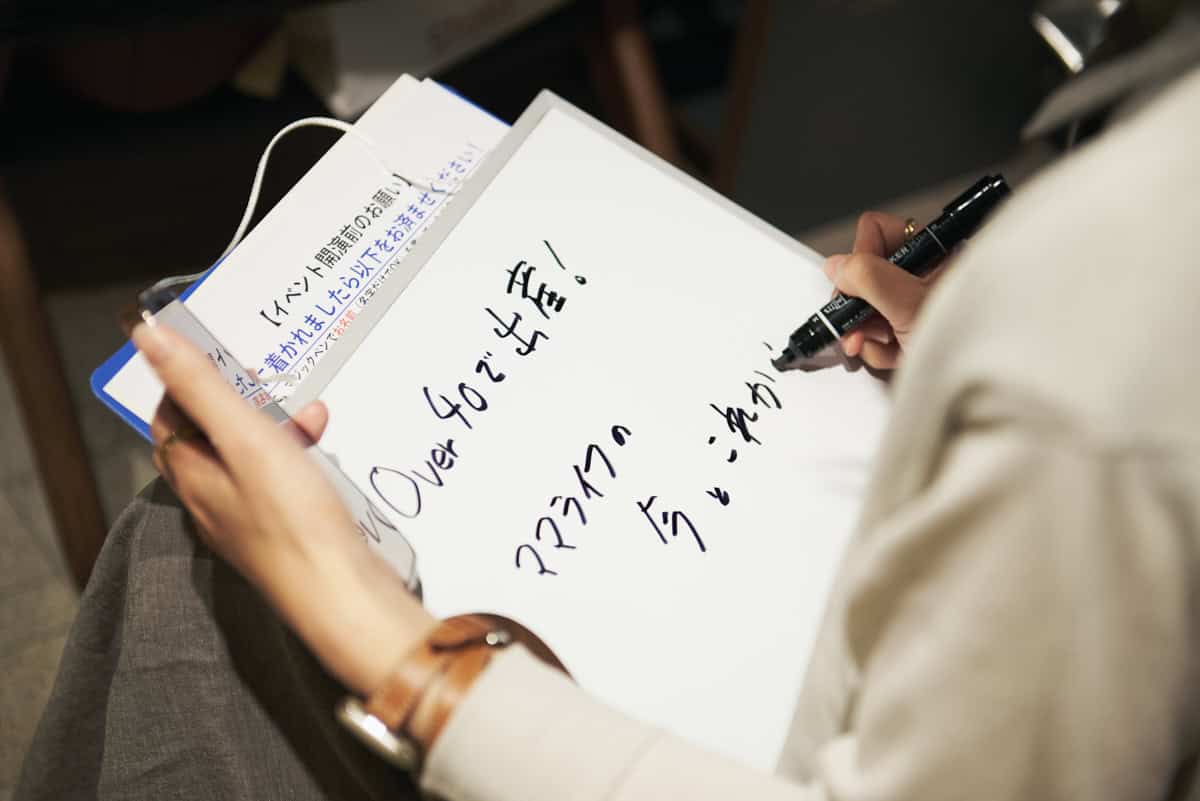 【イベント開演前のお願い】
着かれましたら以下をお済ませください！
ジックペンでお名前
Over 40で出産！
ママライフの
今とこれか